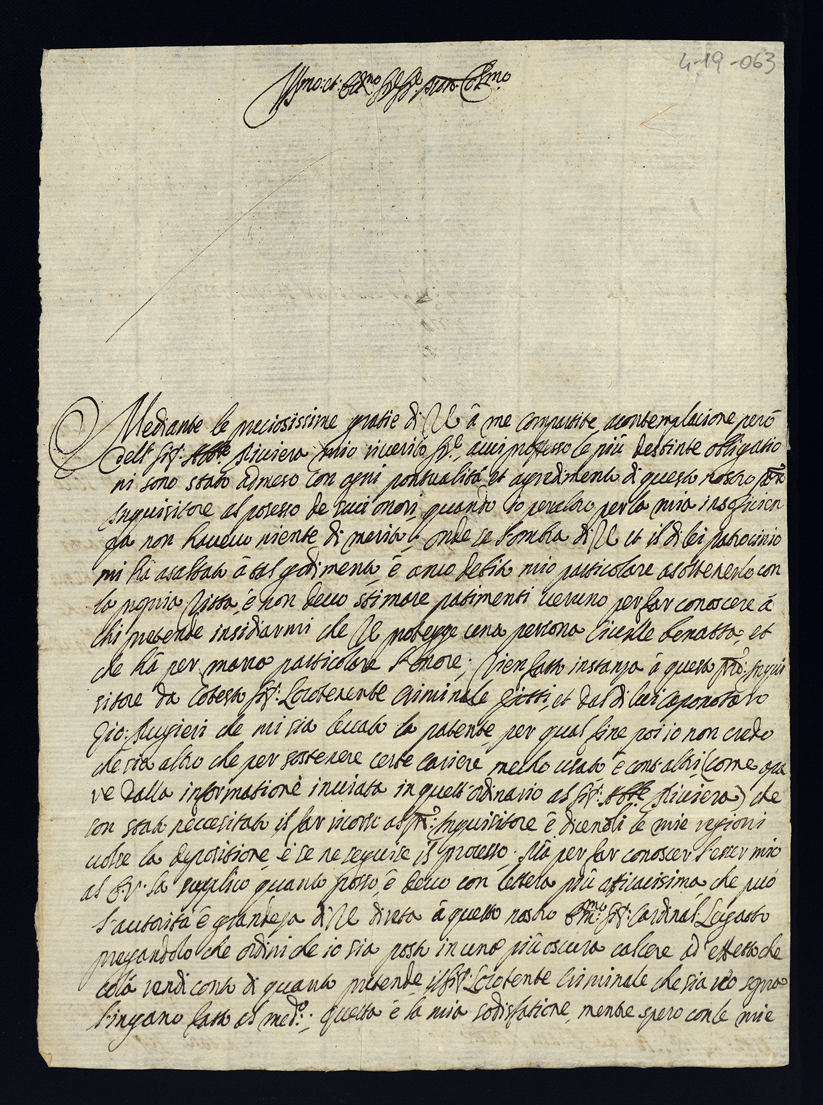 4-19-063
Ill.mo et Rev.mo Sig.r Sig.r Pron Col.mo
Mediante le preciosissime gratie di V à me compartite, acontemplacione però
dell Sig.r Abb.te Riviera mio riverito Sig.r, à cui professo le più destinte obligatio
ni sono stato admeso con ogni pontualità, et agredimento di questo nostro P.re
Inquisitore al posesso de suoi onori, quando Io peraltro per la mia insoficien
za non havevo niente di merito, onde se l'ombra di V et il di lei patrocinio
mi hà asaltato à tal gredimento, è anco debito mio particolare asostenerlo con
la propria Vitta, e non devo stimare patimenti veruno per far conoscere à
chi pretende insidiarmi che V protegge una persona Civille benatta, et
che hà per mano particolare l'onore; Vien fatto instanza à questo P.re Inqui
sitore da Cotesto Sig.r Locotenente Criminale et dal di lui Caponotaro
Gio: Rugieri che mi sia levato la patente, per qual fine poi io non credo
che sia altro che per sostenere certe cariere, me lo usato è con altri (come rica
ve dalla informatione inviata in quell'ordinario al Sig.r Abb.te Riviera) che
son stati necesitati il far ricorso al P.re Inquisitore è dicendoli le mie ragioni
volse la depositione, è se ne seguise il processo. Mà per far conoscer l'esser mio
al S.r V. la suplico quanto posso, è devo con lettera più afficacissima, che può
l'autorità è grandeza di V direta à questo nostro Em.mo Sig.r Cardinal Legatto
pregandolo che ordini che io sia posto in una più oscura calcere ad effetto che
colà rendi conto di quanto pretende il Sig.r Locotente Criminale che sia sogna
l'ingano fatto al med.o; questa è la mia sodisfatione, mentre spero con le mie